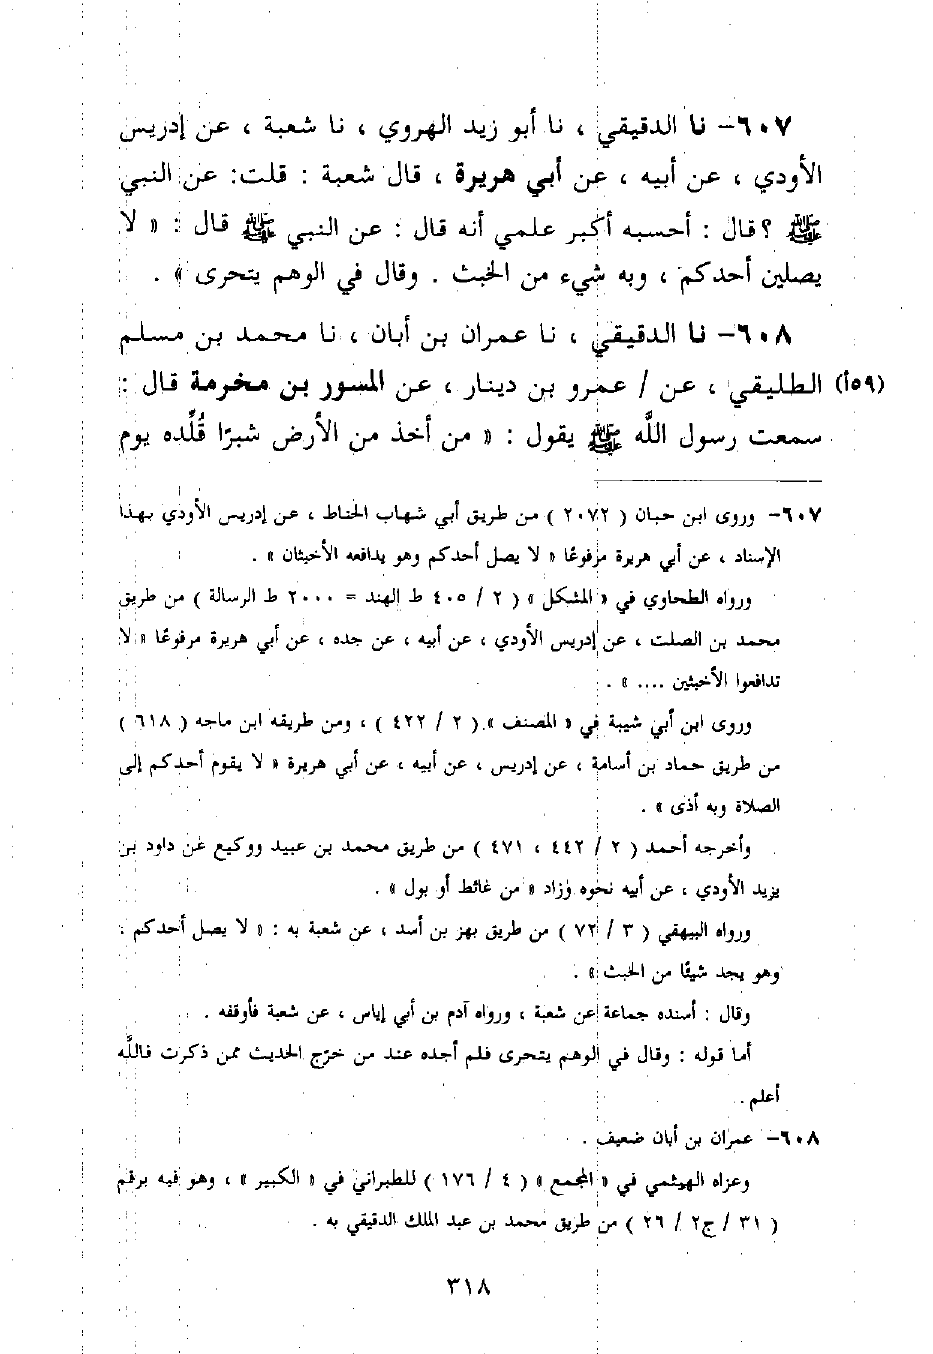 ٦٠٧- نا الدقيقي ، نا أبو زيد الهروي ، نا شعبة ، عن إدريس
الأودي ، عن أبيه ، عن أبي هريرة ، قال شعبة : قلت: عن النبي
ﷺ ؟ قال : أحسبه أكبر علمي أنه قال : عن النبي ﷺ قال : « لا
يصلين أحدكم ، وبه شيء من الخبث . وقال في الوهم يتحرى » .
٦٠٨- نا الدقيقي ، نا عمران بن أبان ، نا محمد بن مسلم
(٥٩أ) الطليقي ، عن / عمرو بن دينار ، عن المسور بن مخرمة قال :
سمعت رسول اللَّه ﷺ يقول : « من أخذ من الأرض شبرًا قُلِّده يوم
٦٠٧- وروى ابن حبان ( ٢٠٧٢ ) من طريق أبي شهاب الحناط ، عن إدريس الأودي بهذا
الإسناد ، عن أبي هريرة مرفوعًا « لا يصل أحدكم وهو يدافعه الأخبثان » .
ورواه الطحاوي في « المشكل » ( ٢ / ٤٠٥ ط الهند = ٢٠٠٠ ط الرسالة ) من طريق
محمد بن الصلت ، عن إدريس الأودي ، عن أبيه ، عن جده ، عن أبي هريرة مرفوعًا « لا
تدافعوا الأخبثين .... » .
وروى ابن أبي شيبة في « المصنف » ( ٢ / ٤٢٢ ) ، ومن طريقه ابن ماجه ( ٦١٨ )
من طريق حماد بن أسامة ، عن إدريس ، عن أبيه ، عن أبي هريرة « لا يقوم أحدكم إلى
الصلاة وبه أذى » .
وأخرجه أحمد ( ٢ / ٤٤٢ ، ٤٧١ ) من طريق محمد بن عبيد ووكيع عن داود بن
يزيد الأودي ، عن أبيه نحوه وزاد « من غائط أو بول » .
ورواه البيهقي ( ٣ / ٧٢ ) من طريق بهز بن أسد ، عن شعبة به : « لا يصل أحدكم
وهو يجد شيئًا من الخبث » .
وقال : أسنده جماعة عن شعبة ، ورواه آدم بن أبي إياس ، عن شعبة فأوقفه .
أما قوله : وقال في الوهم يتحرى فلم أجده عند من خرّج الحديث ممن ذكرت فاللَّه
أعلم .
٦٠٨- عمران بن أبان ضعيف .
وعزاه الهيثمي في « المجمع » ( ٤ / ١٧٦ ) للطبراني في « الكبير » ، وهو فيه برقم
( ٣١ / ج٢ / ٢٦ ) من طريق محمد بن عبد الملك الدقيقي به .
٣١٨